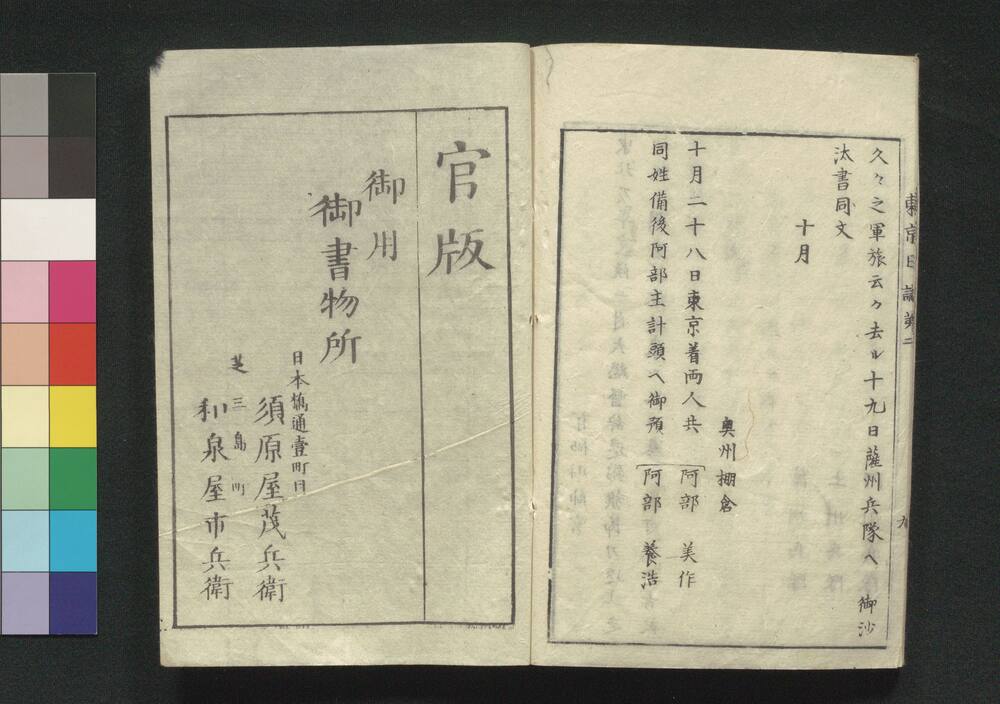 東京日誌第二
久々之軍旅云々去ル十九日薩州兵隊ヘ御沙
汰書同文
十月
奥州棚倉
十月二十八日東京着両人共 阿部美作
同姓備後阿部主計頭ヘ御預 阿部養浩
九
官版
御用
御書物所
日本橋通壹町目
須原屋茂兵衛
芝三島町
和泉屋市兵衛